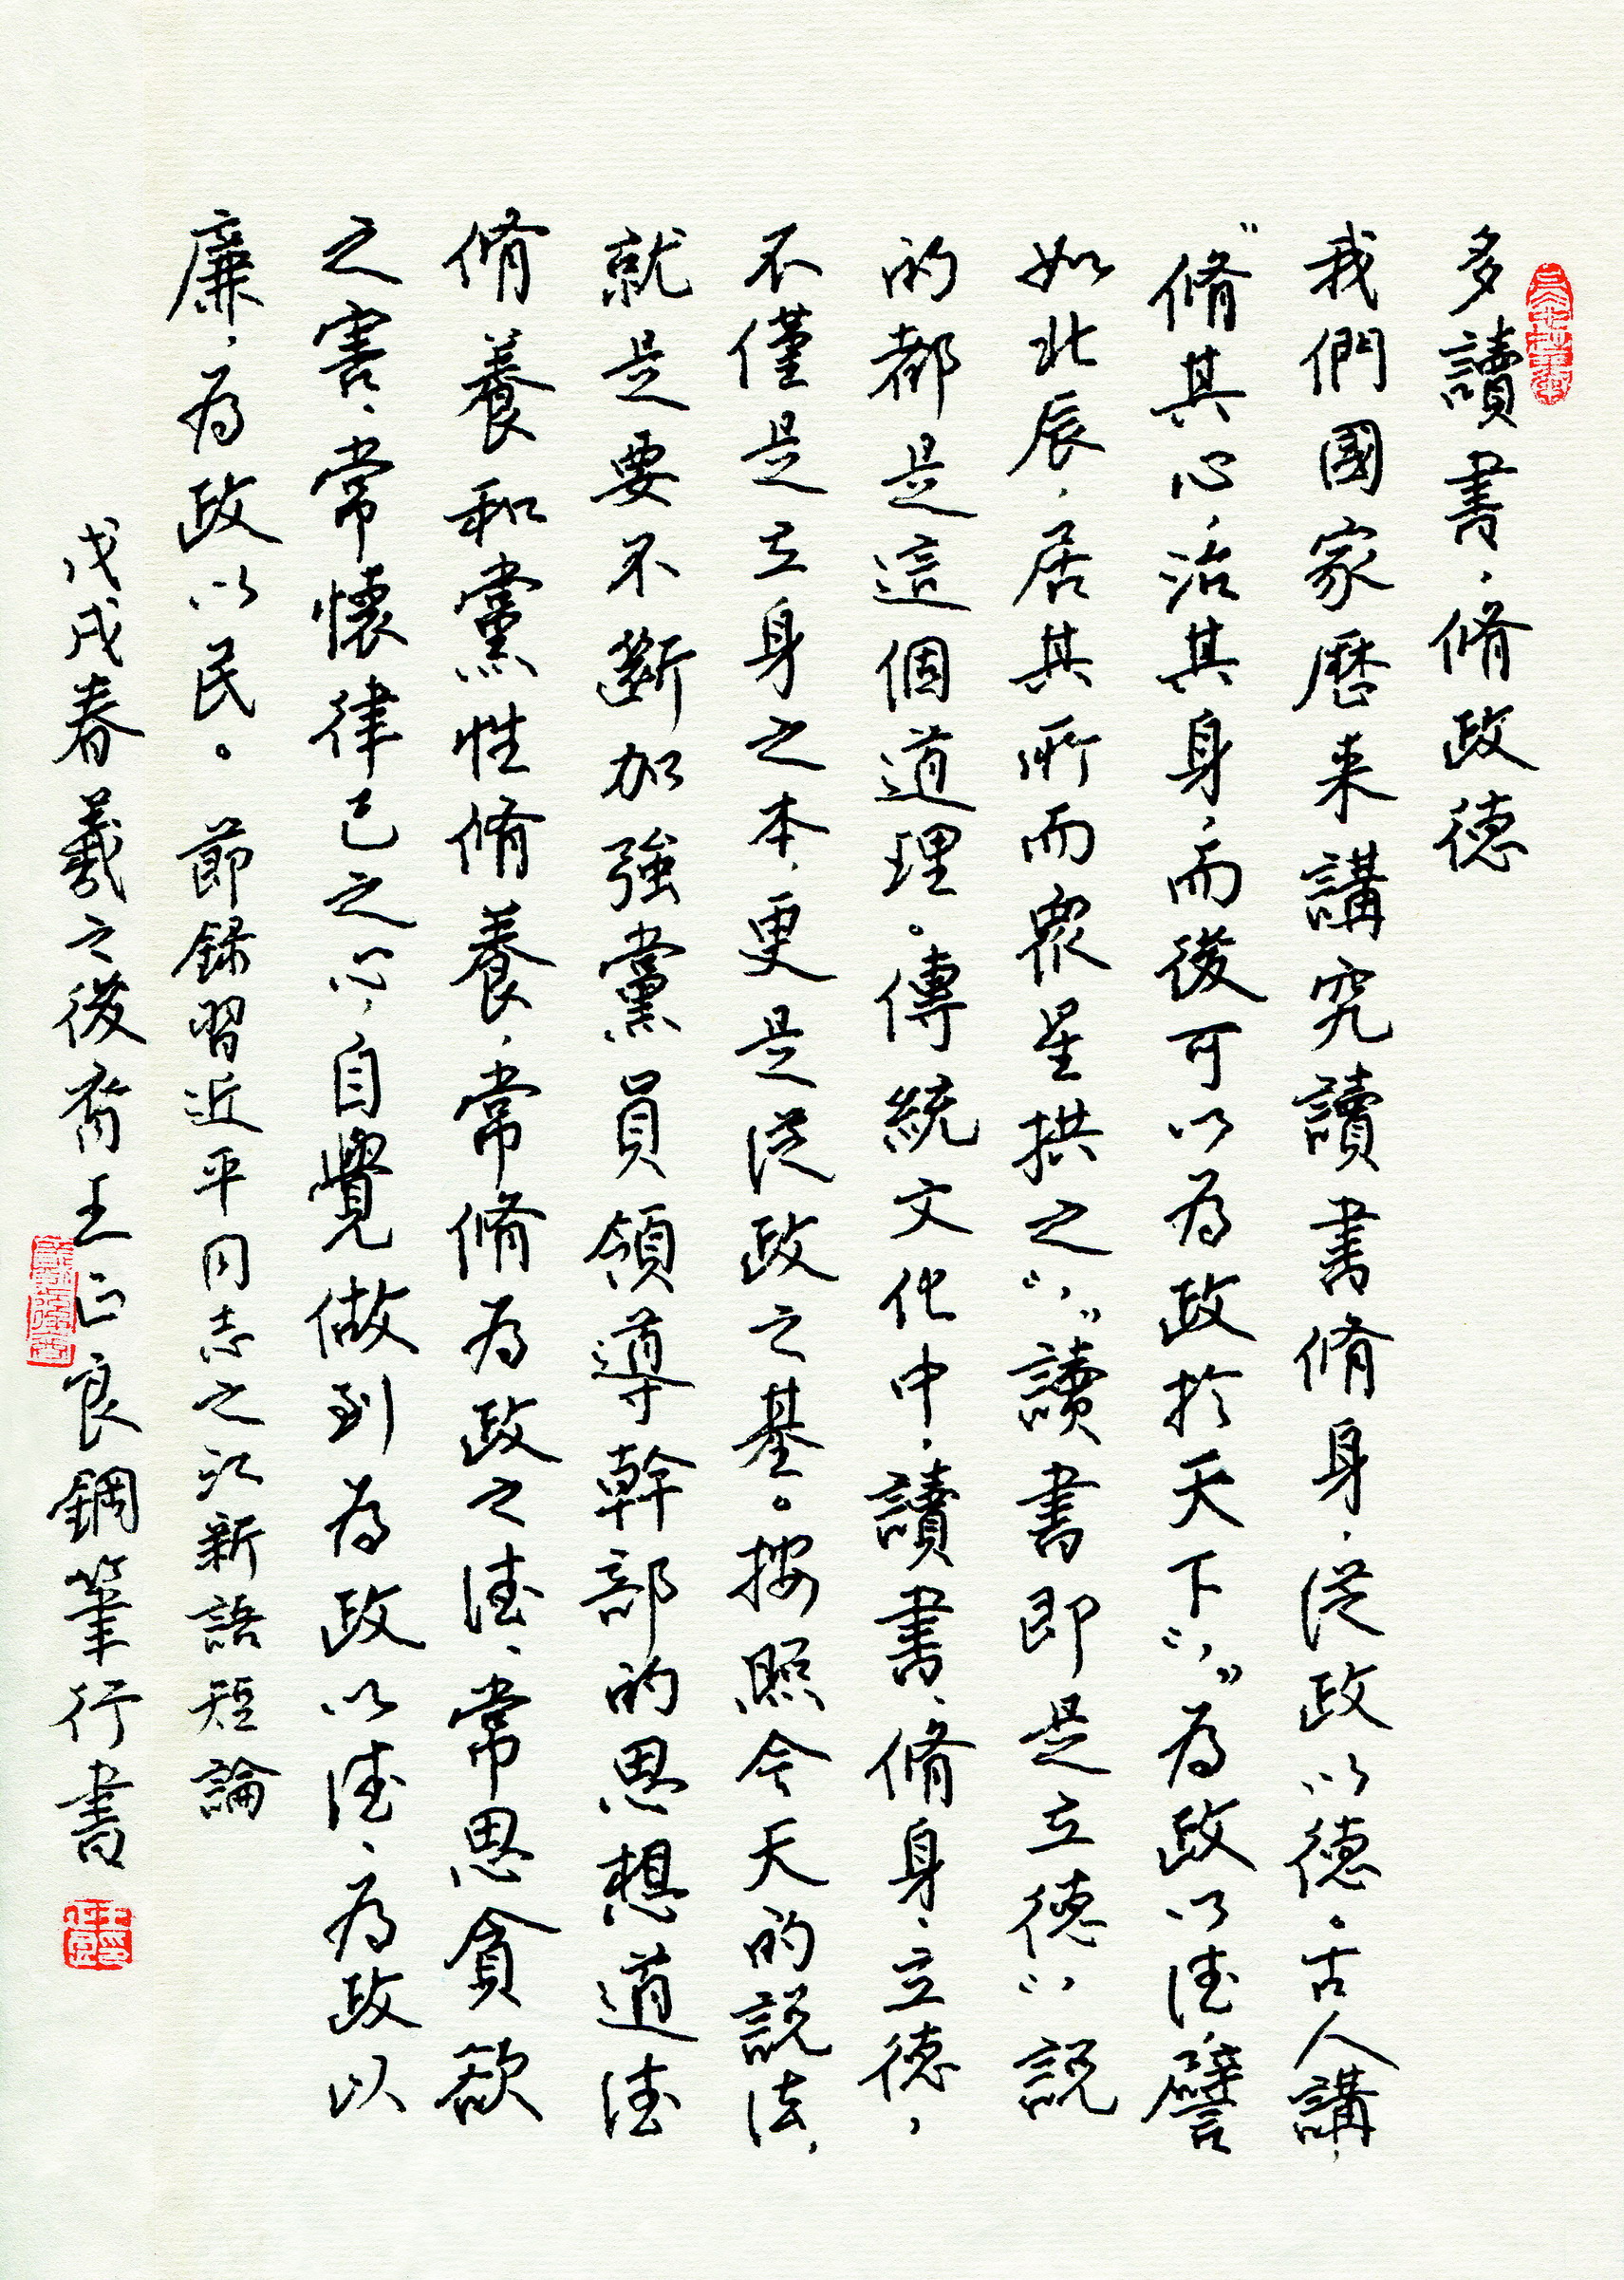 多讀書，脩政德
我們國家歷来講究讀書脩身，從政以德。古人講，
“脩其心，治其身，而後可以為政於天下”，“為政以德譬
如北辰，居其所而眾星拱之”，“讀書即是立德”，説
的都是這個道理。傳統文化中，讀書、脩身、立德，
不僅是立身之本，更是從政之基。按照今天的説法，
就是要不斷加強黨員領導幹部的思想道德
脩養和黨性脩養，常脩為政之德、常思貪欲
之害、常懷律己之心，自覺做到為政以德、為政以
廉、為政以民。節錄習近平同志之江新語短論
戊戌春羲之後裔王正良鋼筆行書